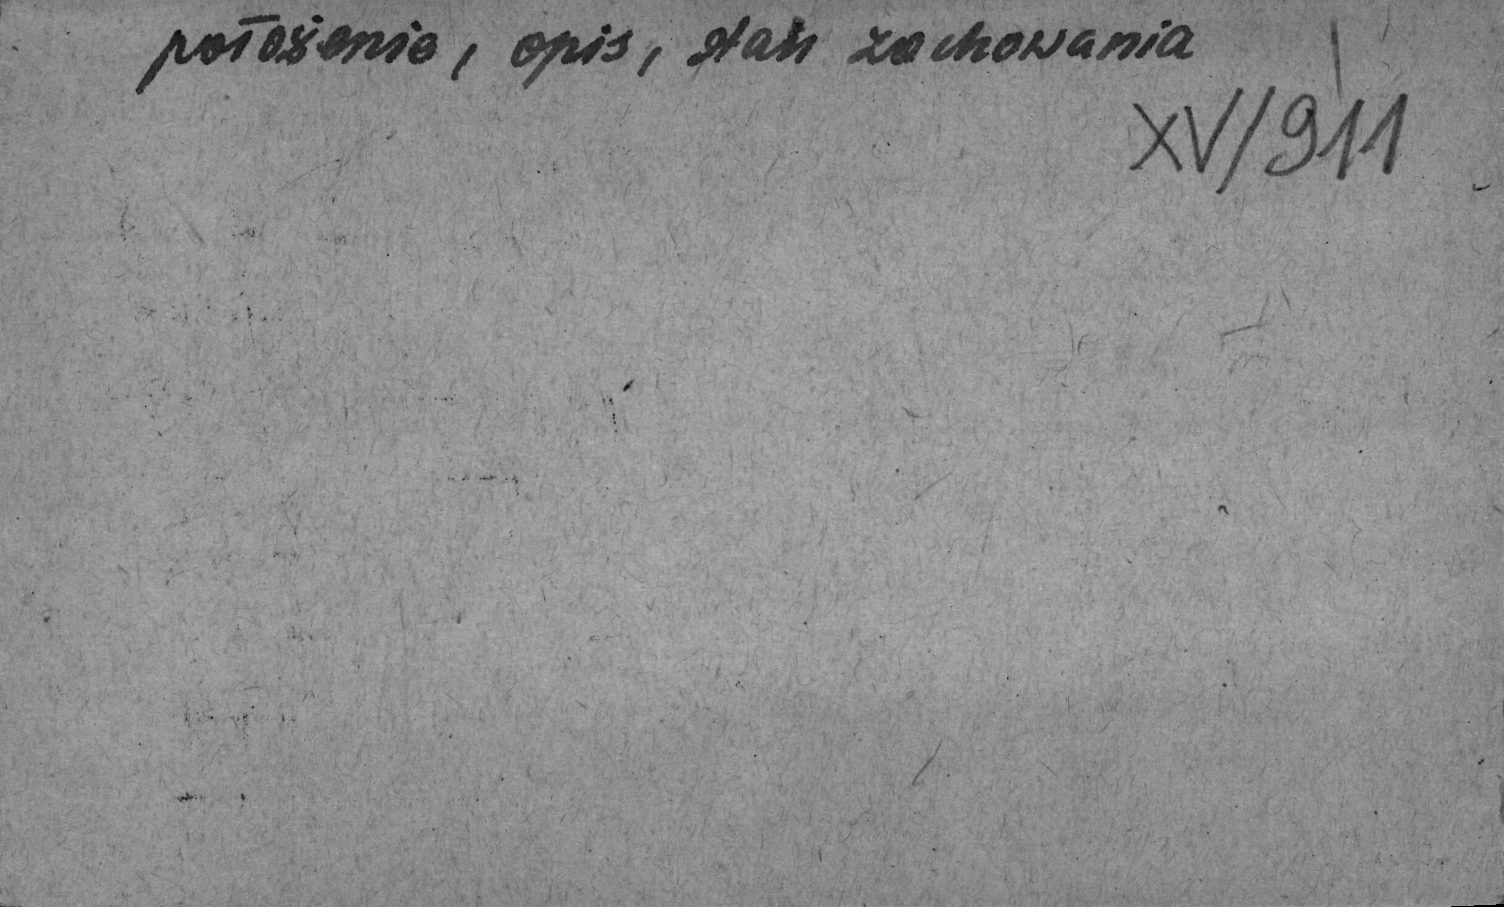 położenie, opis, stan zachowania
XV/911